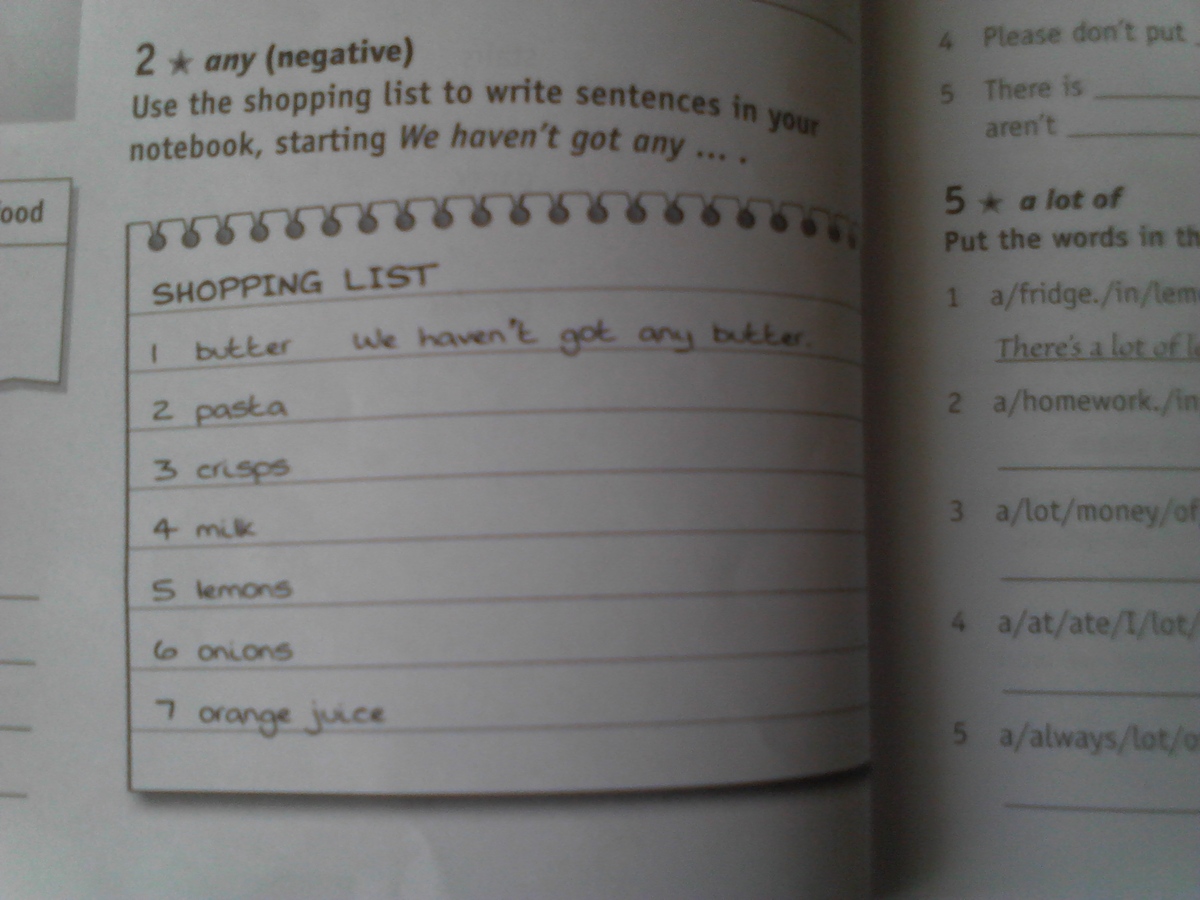 ood
2 ★ any (negative)
Use the shopping list to write sentences in your
notebook, starting We haven't got any ... .
SHOPPING LIST
1 butter We haven't got any butter.
2 pasta
3 crisps
4 milk
5 lemons
6 onions
7 orange juice
4 Please don't put
5 There is
aren't
5 ★ a lot of
Put the words in th
1 a/fridge./in/lem
There's a lot of le
2 a/homework./in
3 a/lot/money/of
4 a/at/ate/I/lot/
5 a/always/lot/o